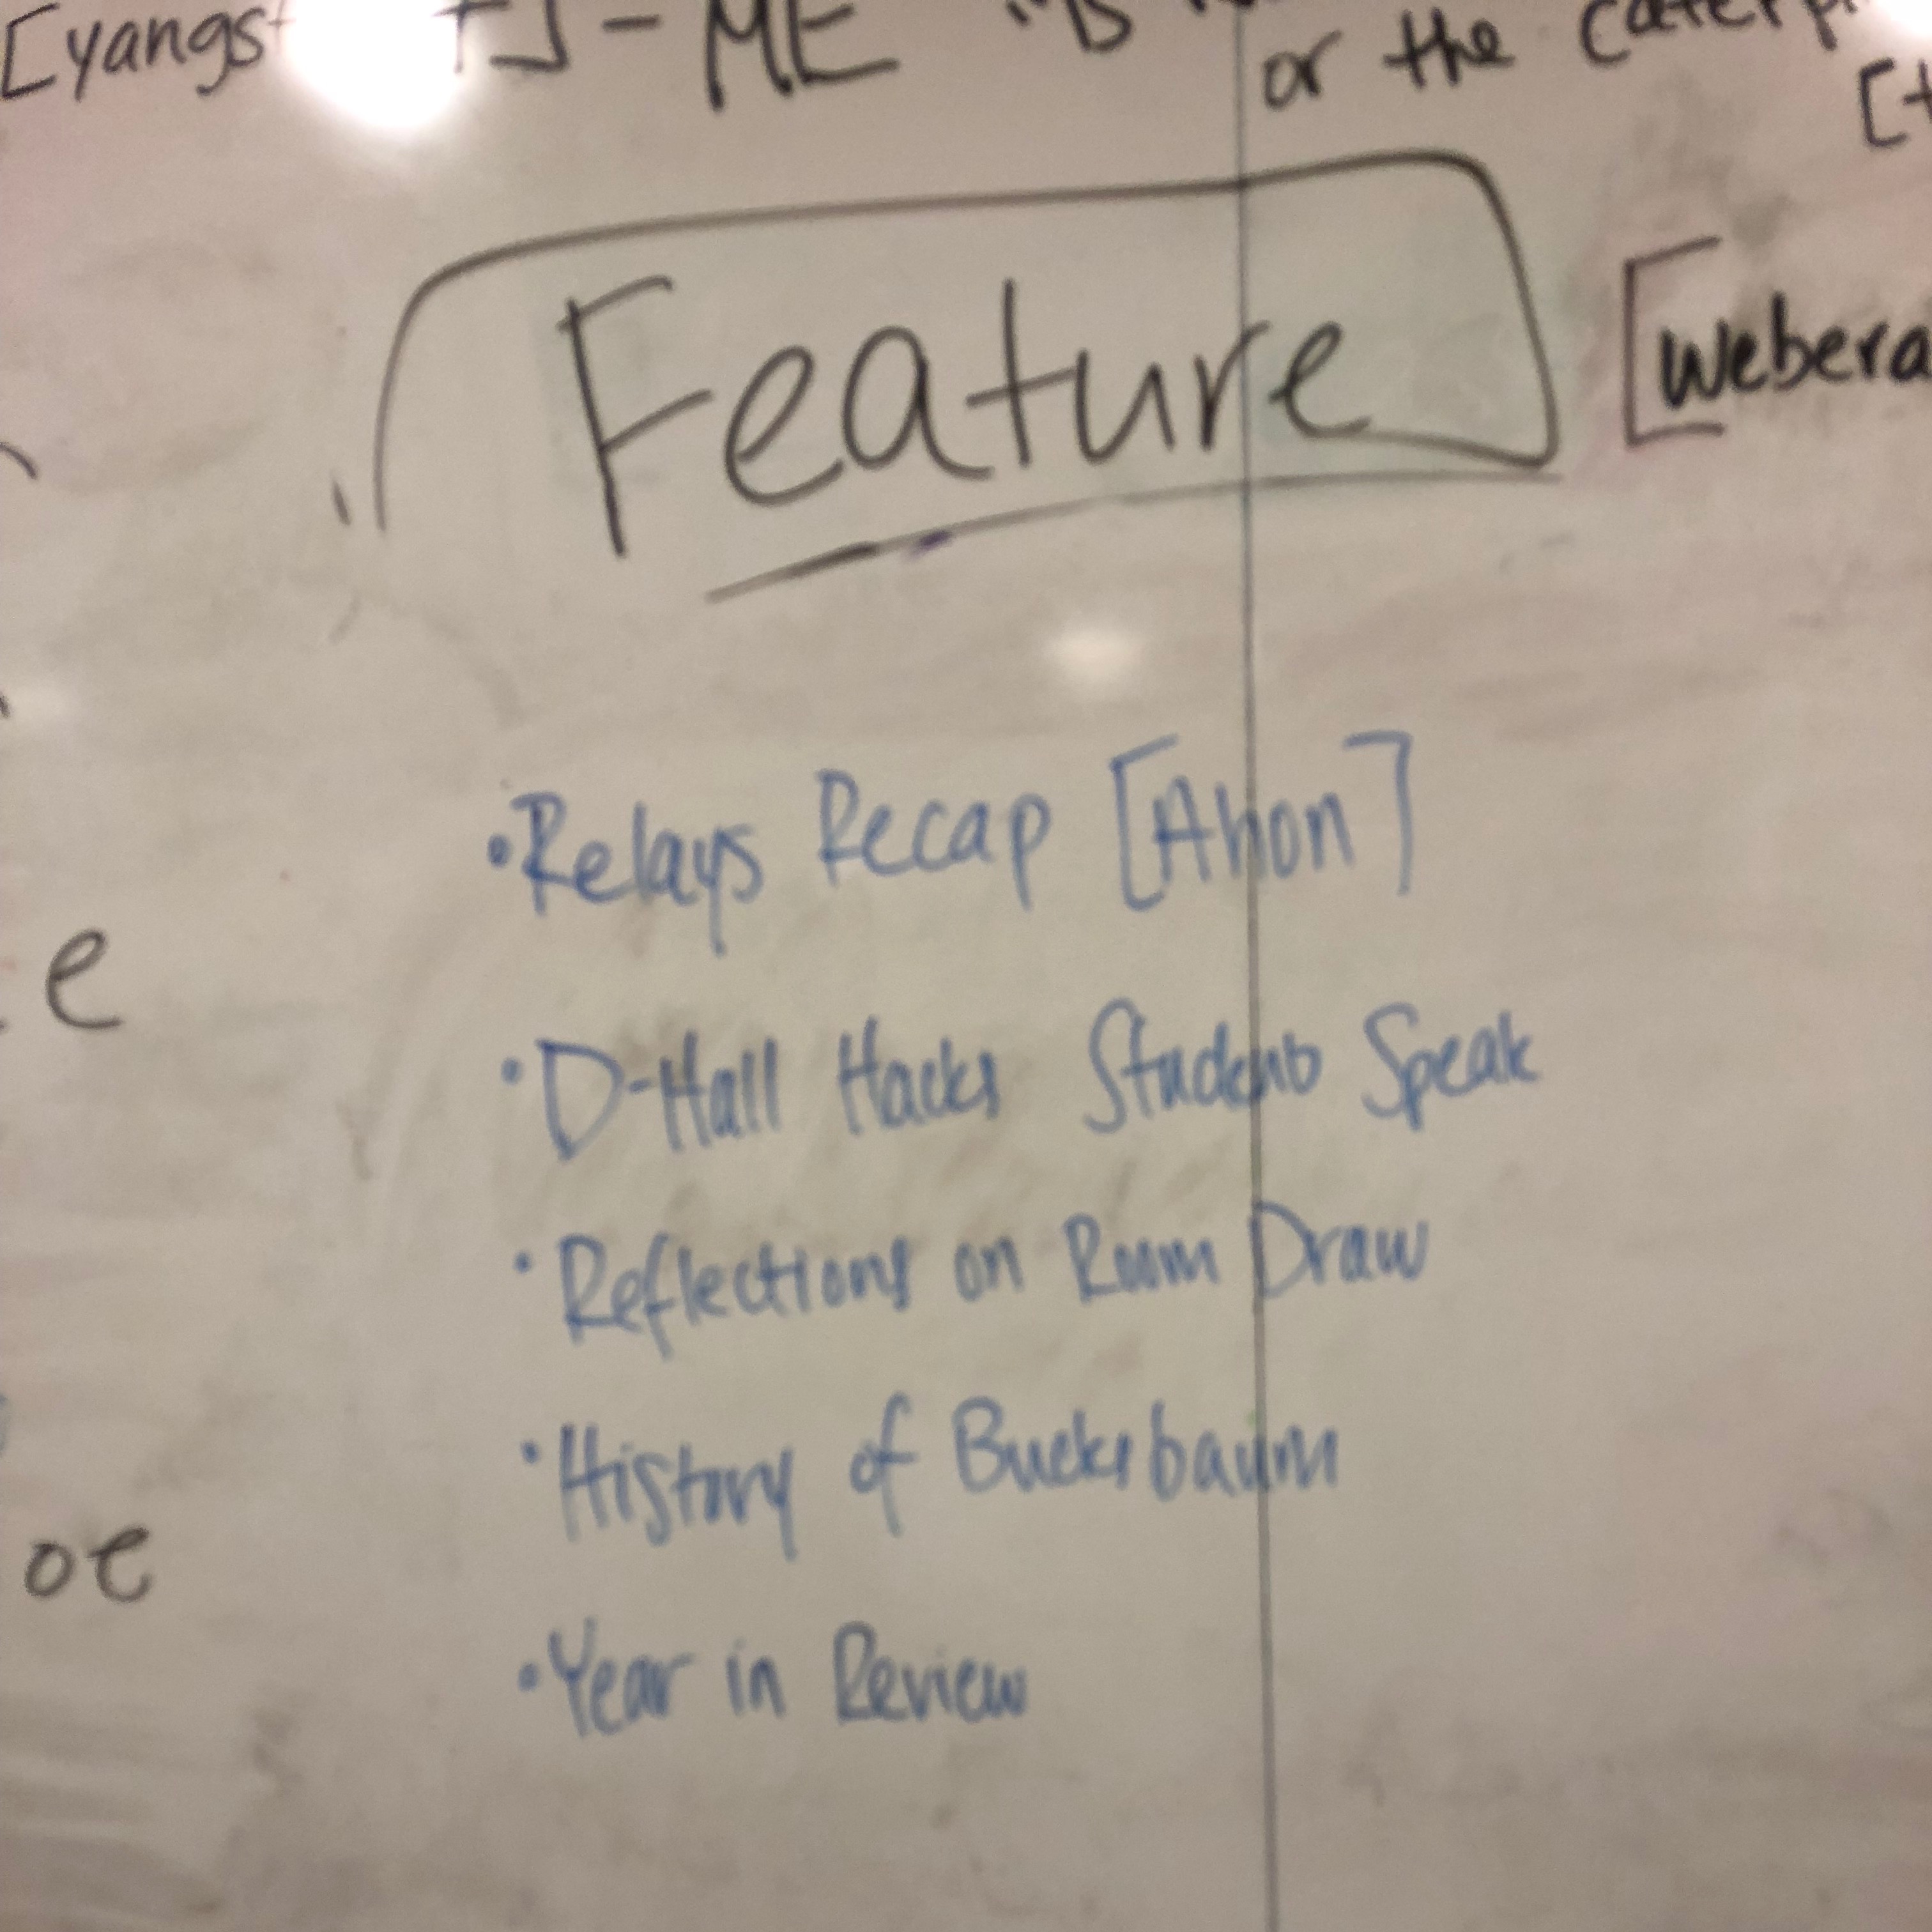 - ME
or the
Feature
• Relays Recap [Ahon]
• D-Hall Hacks Students Speak
• Reflections on Room Draw
• History of Bucksbaum
• Year in Review